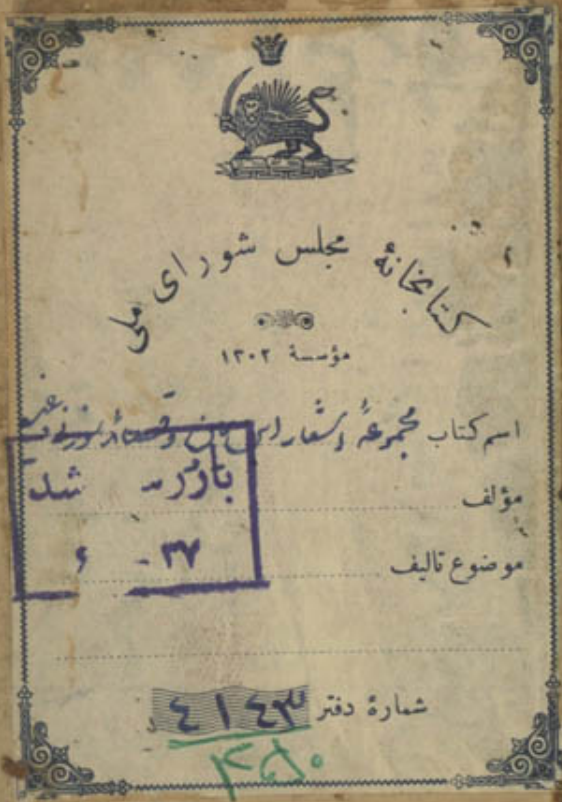 کتابخانهٔ مجلس شورای ملی
مؤسسهٔ ۱۳۰۲
اسم کتاب مجموعهٔ اشعار
بازرسی شد
مؤلف
۶ - ۳۷
موضوع تالیف
شمارهٔ دفتر ٤١٤٣